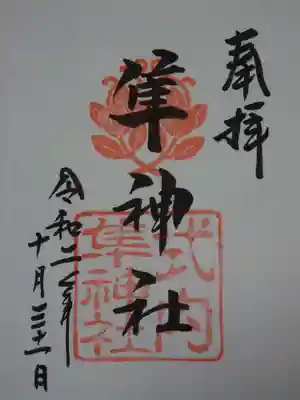 奉拝
隼神社
式内
隼神社
令和二年
十月三十一日